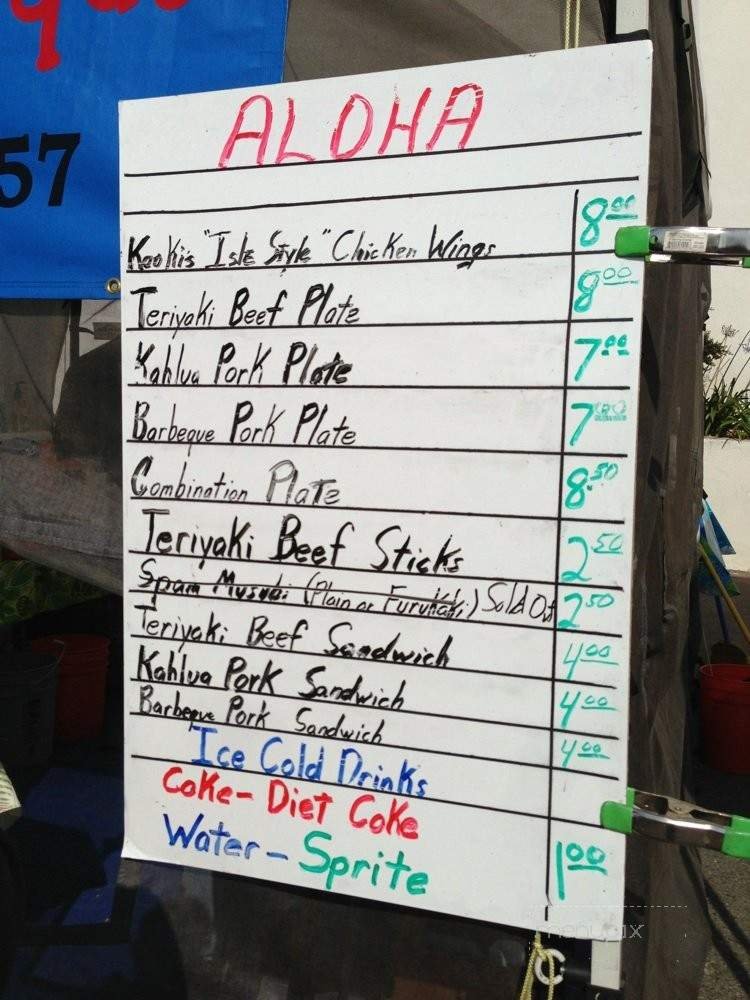 que
57
ALOHA
Keokis "Isle Style" Chicken Wings 8.00
Teriyaki Beef Plate 8.00
Kahlua Pork Plate 7.00
Barbeque Pork Plate 7.00
Combination Plate 8.50
Teriyaki Beef Sticks 2.50
Spam Musubi (Plain or Furukaki) Sold Out 2.50
Teriyaki Beef Sandwich 4.00
Kahlua Pork Sandwich 4.00
Barbeque Pork Sandwich 4.00
Ice Cold Drinks
Coke - Diet Coke
Water - Sprite 1.00
menupix